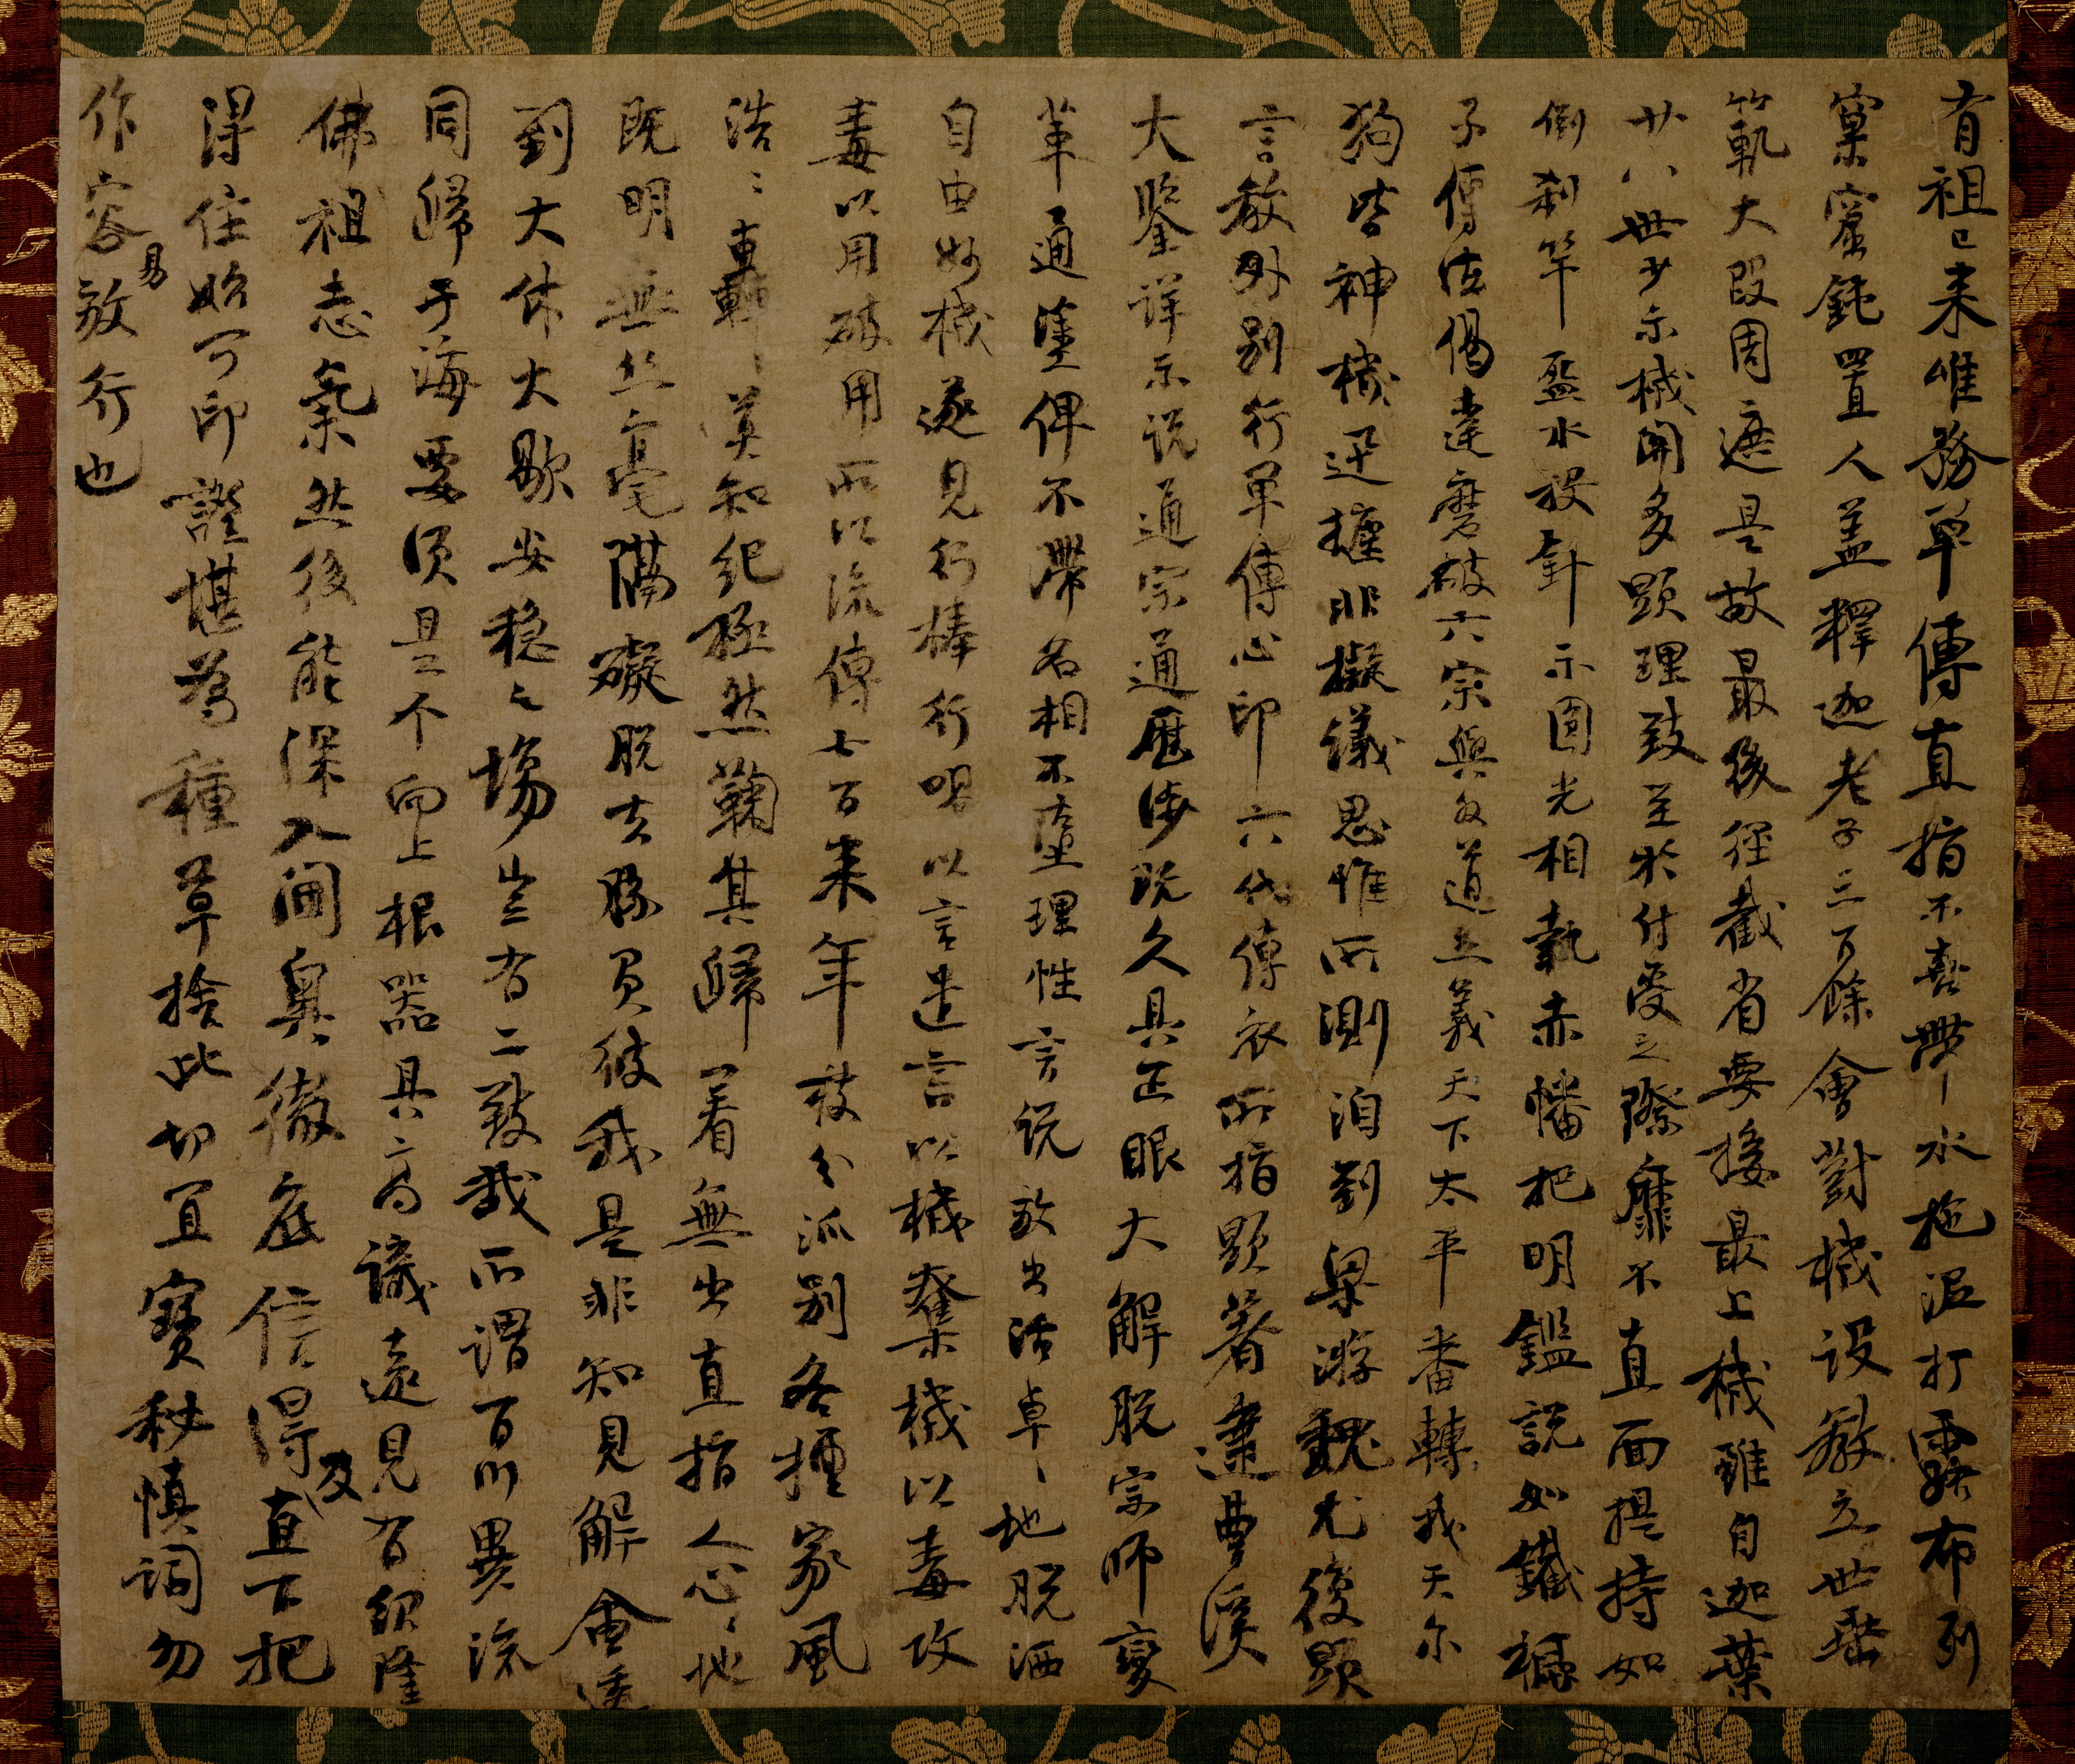 有祖已来唯務單傳直指不喜帶水拖泥打露布列
窠窟鈍置人盖釋迦老子三百餘會對機設教立世垂
範大段周遮是故最後径截省要接最上機雖自迦葉
廿八世少示機關多顯理致至於付受之際靡不直面提持如
倒刹竿盔水投針示圓光相執赤幡把明鑑説如鐵橛
子傳法偈達磨破六宗與外道立義天下太平番轉我天尔
狗皆神機迅捷非擬議思惟所測洎到梁游魏尤復顯
言教外別行單傳心印六代傳衣所指顯著逮曹溪
大鑒詳示説通宗通歷涉既久具正眼大解脱宗師變
革通塗俾不滯名相不墮理性言説放出活卓〻地脱洒
自由妙機遂見行棒行喝以言遣言以機奪機以毒攻
毒以用破用所以流傳七百来年枝分派別各擅家風
浩〻轟〻莫知紀極然鞠其歸著無出直指人心〻地
既明無絲毫隔礙脱去勝負彼我是非知見解會透
到大休大歇安穩之場豈有二致哉所謂百川異流
同歸于海要須是个向上根器具高識遠見有紹隆
佛祖志氣然後能深入閫奥徹底信得及直下把
得住始可印證堪為種草捨此切宜寶秘慎詞勿
作容易放行也